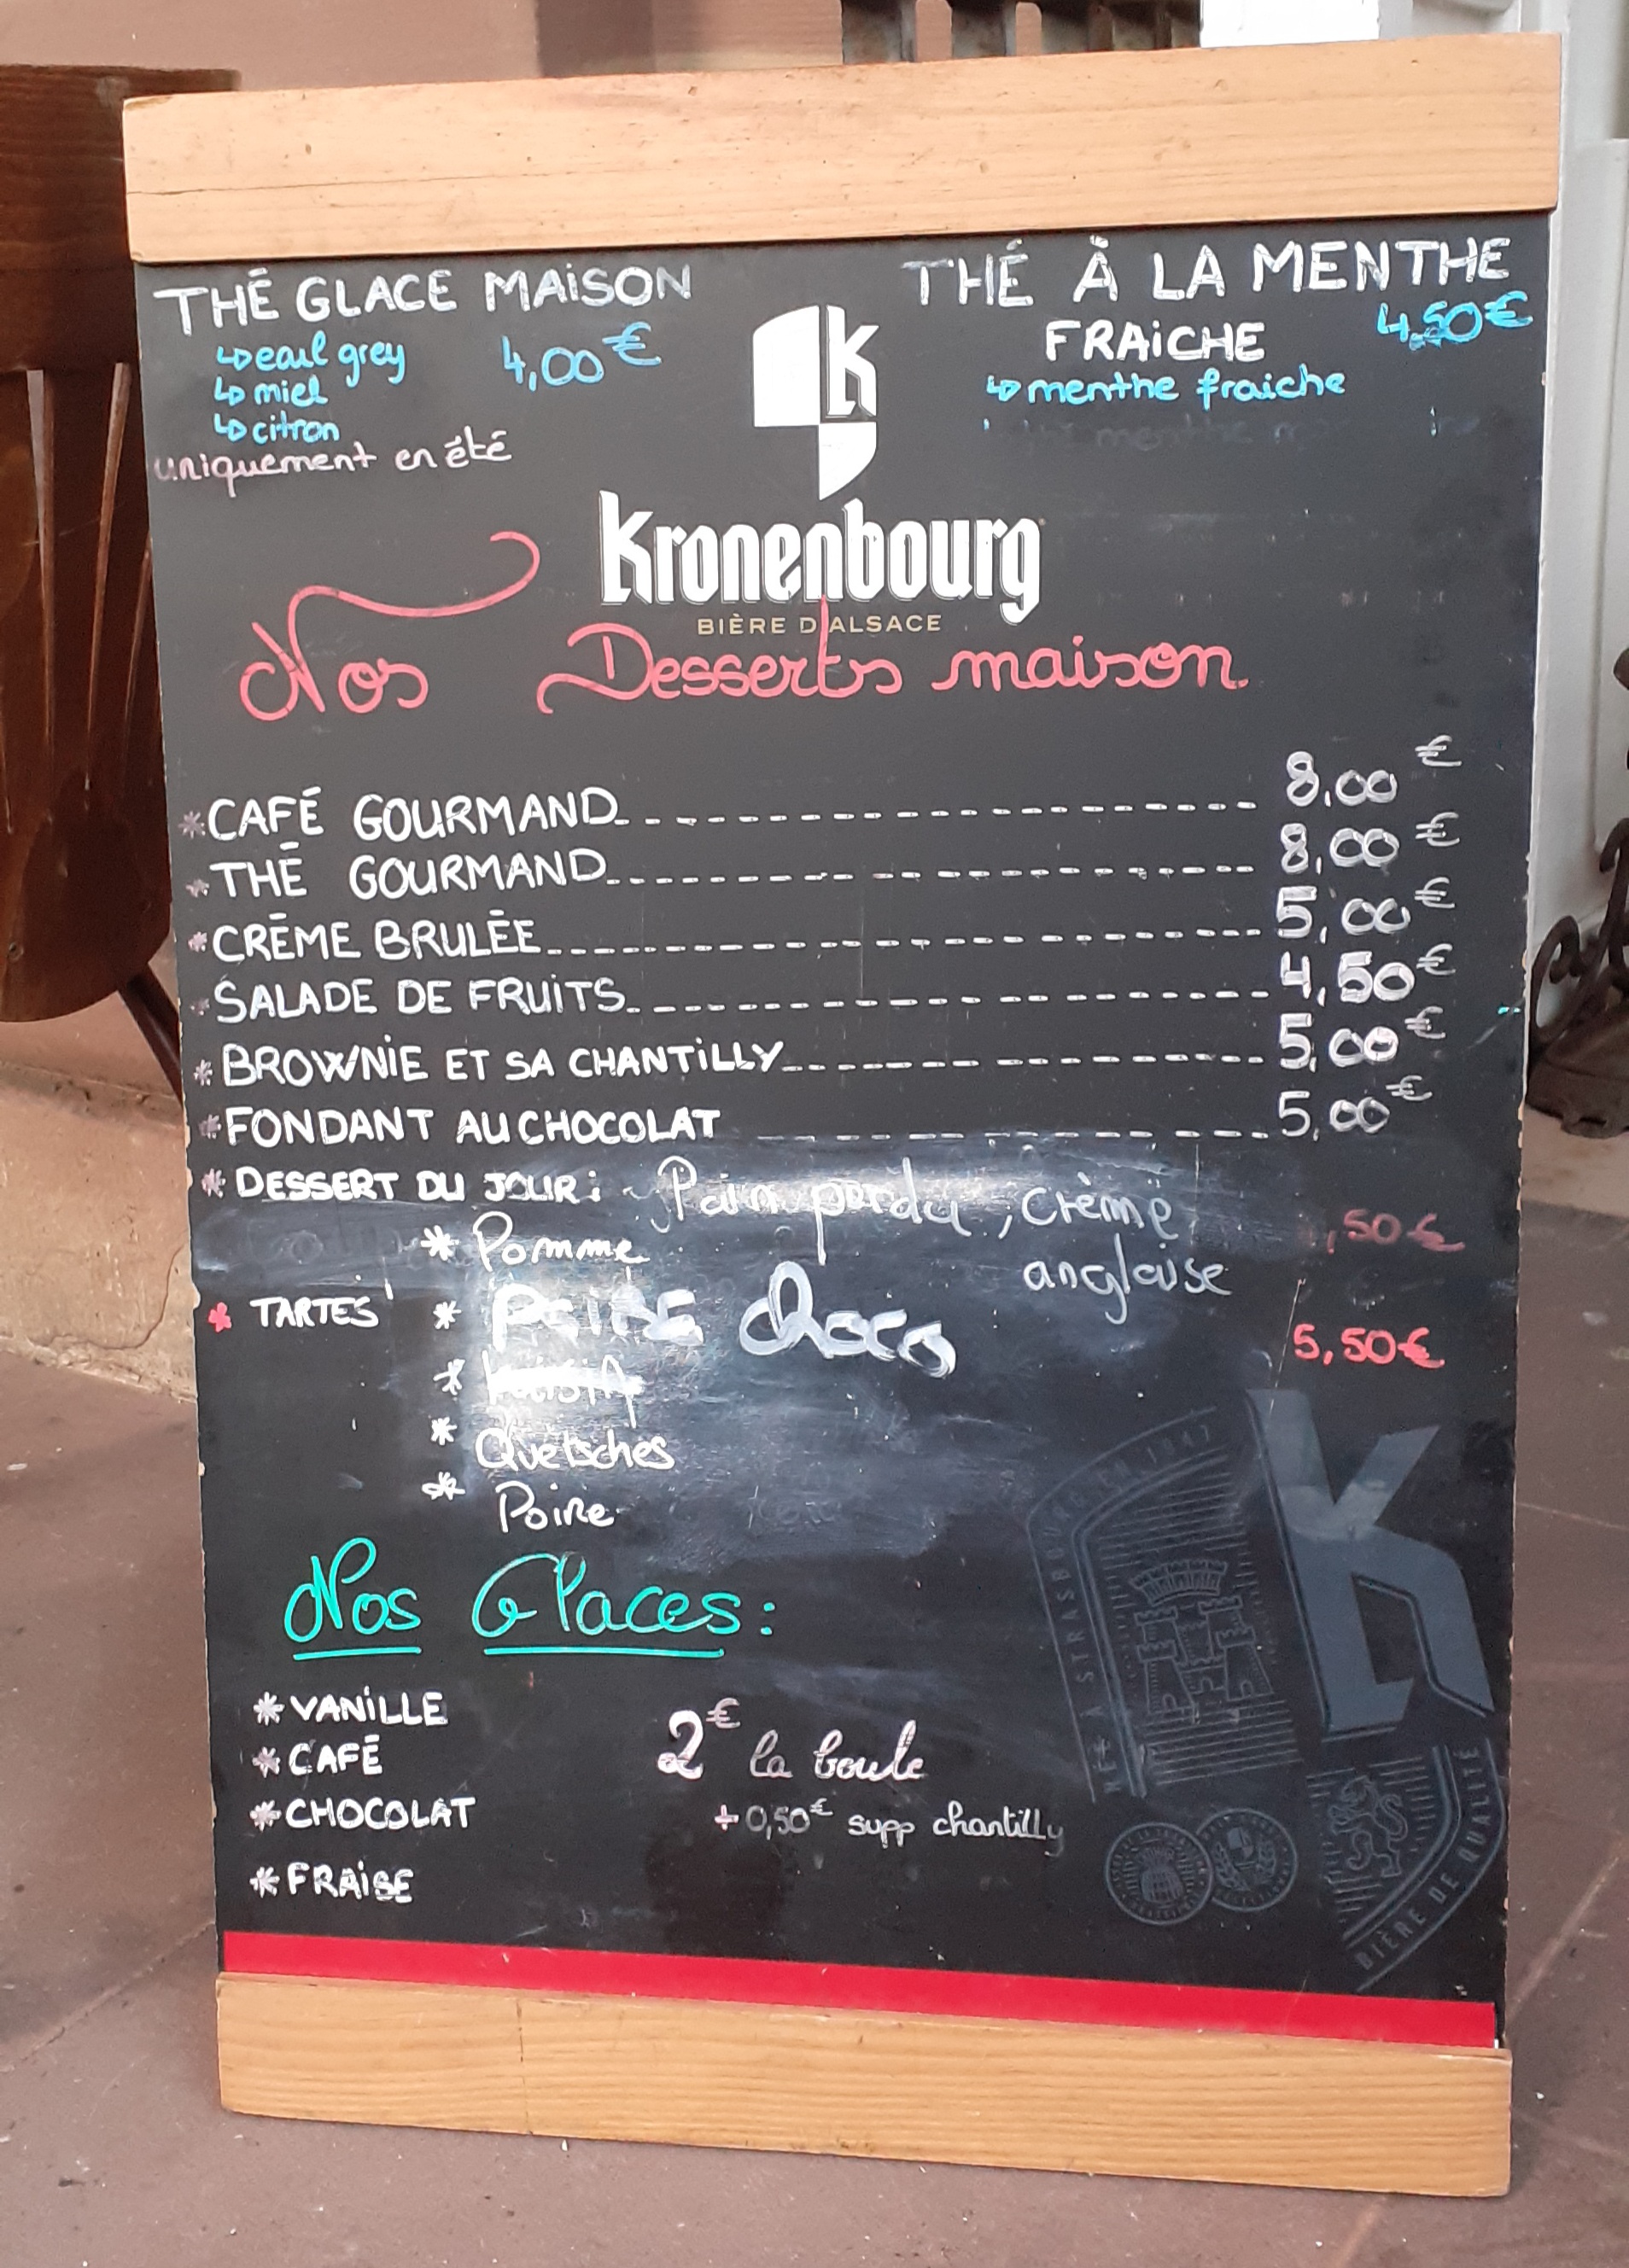 THÉ GLACE MAISON
4,00€
↳ earl grey
↳ miel
↳ citron
uniquement en été
THÉ À LA MENTHE
FRAICHE
4,50€
↳ menthe fraiche
K
Kronenbourg
BIÈRE D'ALSACE
Nos Desserts maison
* CAFÉ GOURMAND 8,00€
* THÉ GOURMAND 8,00€
* CRÈME BRULÉE 5,00€
* SALADE DE FRUITS 4,50€
* BROWNIE ET SA CHANTILLY 5,00€
* FONDANT AU CHOCOLAT 5,00€
* DESSERT DU JOUR : Pain perdu, crème
anglaise
,50€
* TARTES
* Pomme
* POIRE choco
5,50€
* Quetsches
* Poire
Nos Glaces :
* VANILLE
* CAFÉ
* CHOCOLAT
* FRAISE
2€ la boule
+ 0,50€ supp chantilly
K
NÉ À STRASBOURG EN 1947
BIÈRE DE QUALITÉ